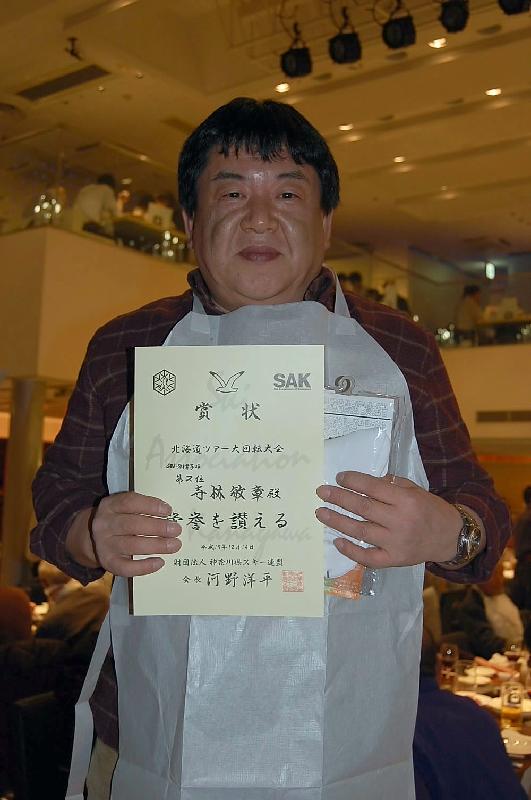 SAK
賞状
Ski
Association
Kanagawa
北海道ツアー大回転大会
第2位
寺林敏章殿
栄誉を讃える
財団法人 神奈川県スキー連盟
会長 河野洋平